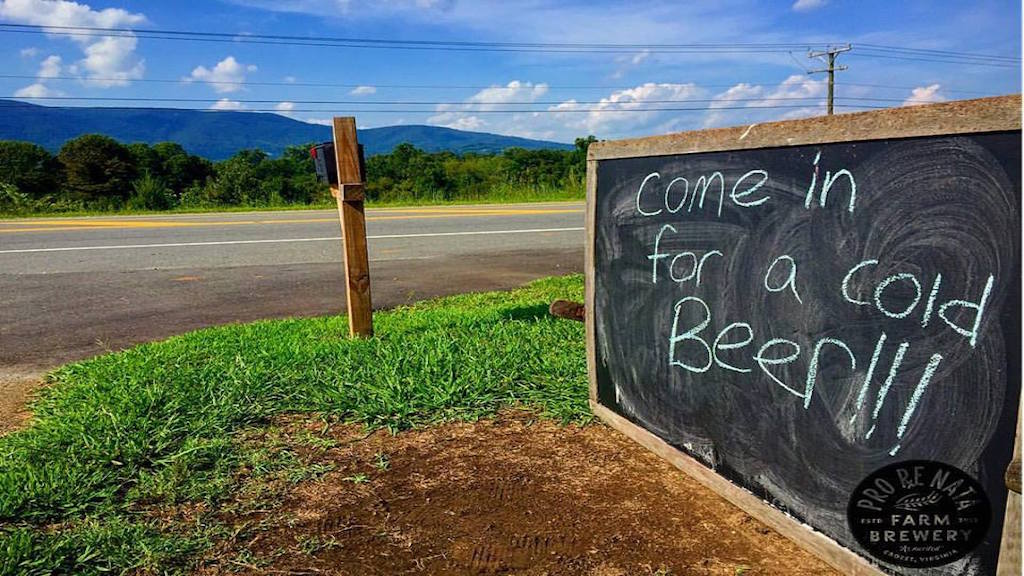 come in
for a cold
Beer!!!
PRO RE NATA
ESTD
FARM
BREWERY
CROZET, VIRGINIA